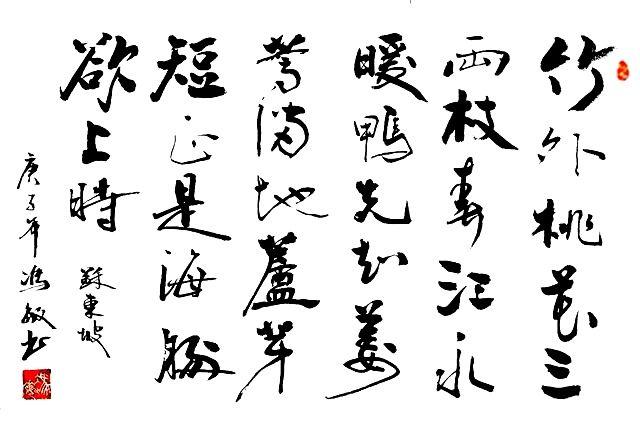 竹外桃花三
两枝春江水
暖鴨先知蒌
蒿满地蘆芽
短正是海豚
欲上時
蘇東坡
庚子年馮敏书